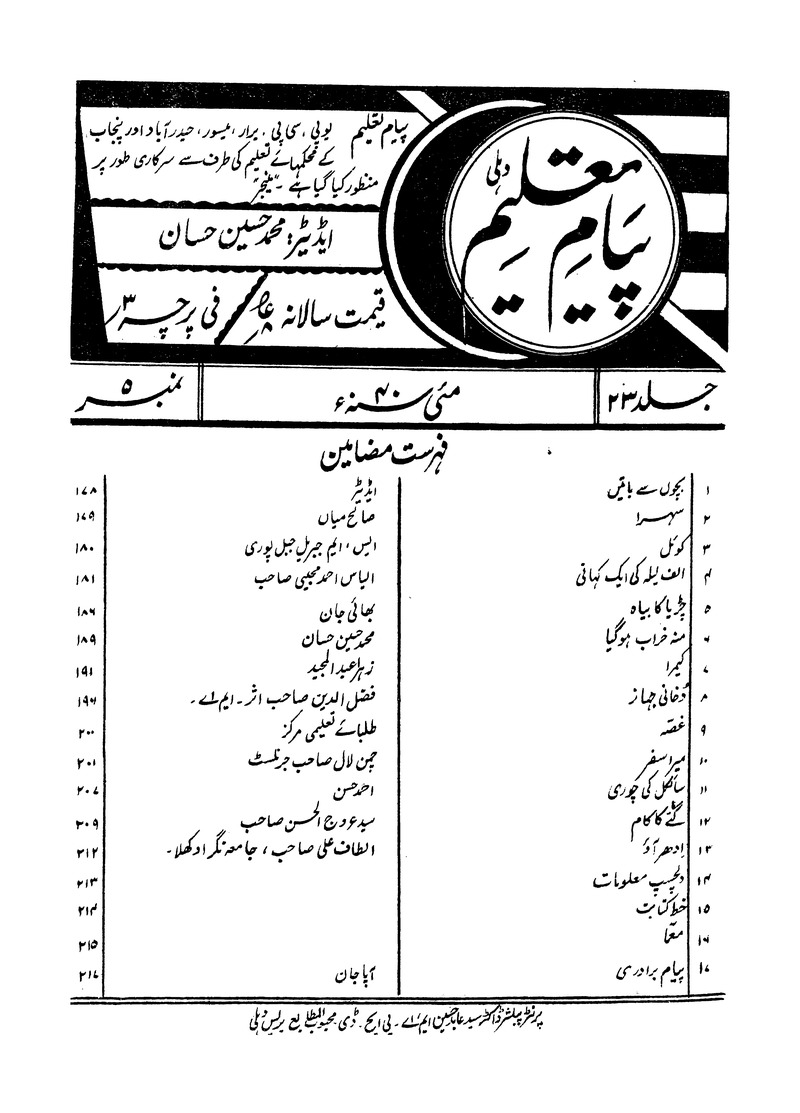 پیام تعلیم
دہلی
پیام تعلیم یوپی، سی پی، برار، میسور، حیدرآباد اور پنجاب
کے محکمہائے تعلیم کی طرف سے سرکاری طور پر
منظور کیا گیا ہے۔ "منیجر"
ایڈیٹر: محمد حسین حسان
قیمت سالانہ فی پرچہ ۳ر
جلد ۲۳ مئی سنہ ۴۰ء نمبر ۵
فہرست مضامین
۱ بچوں سے باتیں ایڈیٹر ۱۷۸
۲ سہرا صالح میاں ۱۷۹
۳ کوئل ایس، ایم جبریل جبل پوری ۱۸۰
۴ الف لیلہ کی ایک کہانی الیاس احمد مجیبی صاحب ۱۸۱
۵ چڑیا کا بیاہ بھائی جان ۱۸۶
۶ منہ خراب ہوگیا محمد حسین حسان ۱۸۹
۷ کیمرا زہرا عبدالمجید ۱۹۱
۸ دُخانی جہاز فضل الدین صاحب اثر۔ ایم اے۔ ۱۹۶
۹ غصّہ طلبائے تعلیمی مرکز ۲۰۰
۱۰ میرا سفر چمن لال صاحب جرنلسٹ ۲۰۱
۱۱ سائکل کی چوری احمد حسن ۲۰۷
۱۲ گتّے کا کام سید عروج الحسن صاحب ۲۰۹
۱۳ اِدھر آؤ الطاف علی صاحب، جامعہ نگر اوکھلا۔ ۲۱۲
۱۴ دلچسپ معلومات ۲۱۳
۱۵ خط کتابت ۲۱۴
۱۶ معمّا ۲۱۵
۱۷ پیام برادری آپا جان ۲۱۷
پرنٹر پبلشر ڈاکٹر سید عابد حسین ایم، اے۔ پی ایچ۔ ڈی محبوب المطابع پریس دہلی